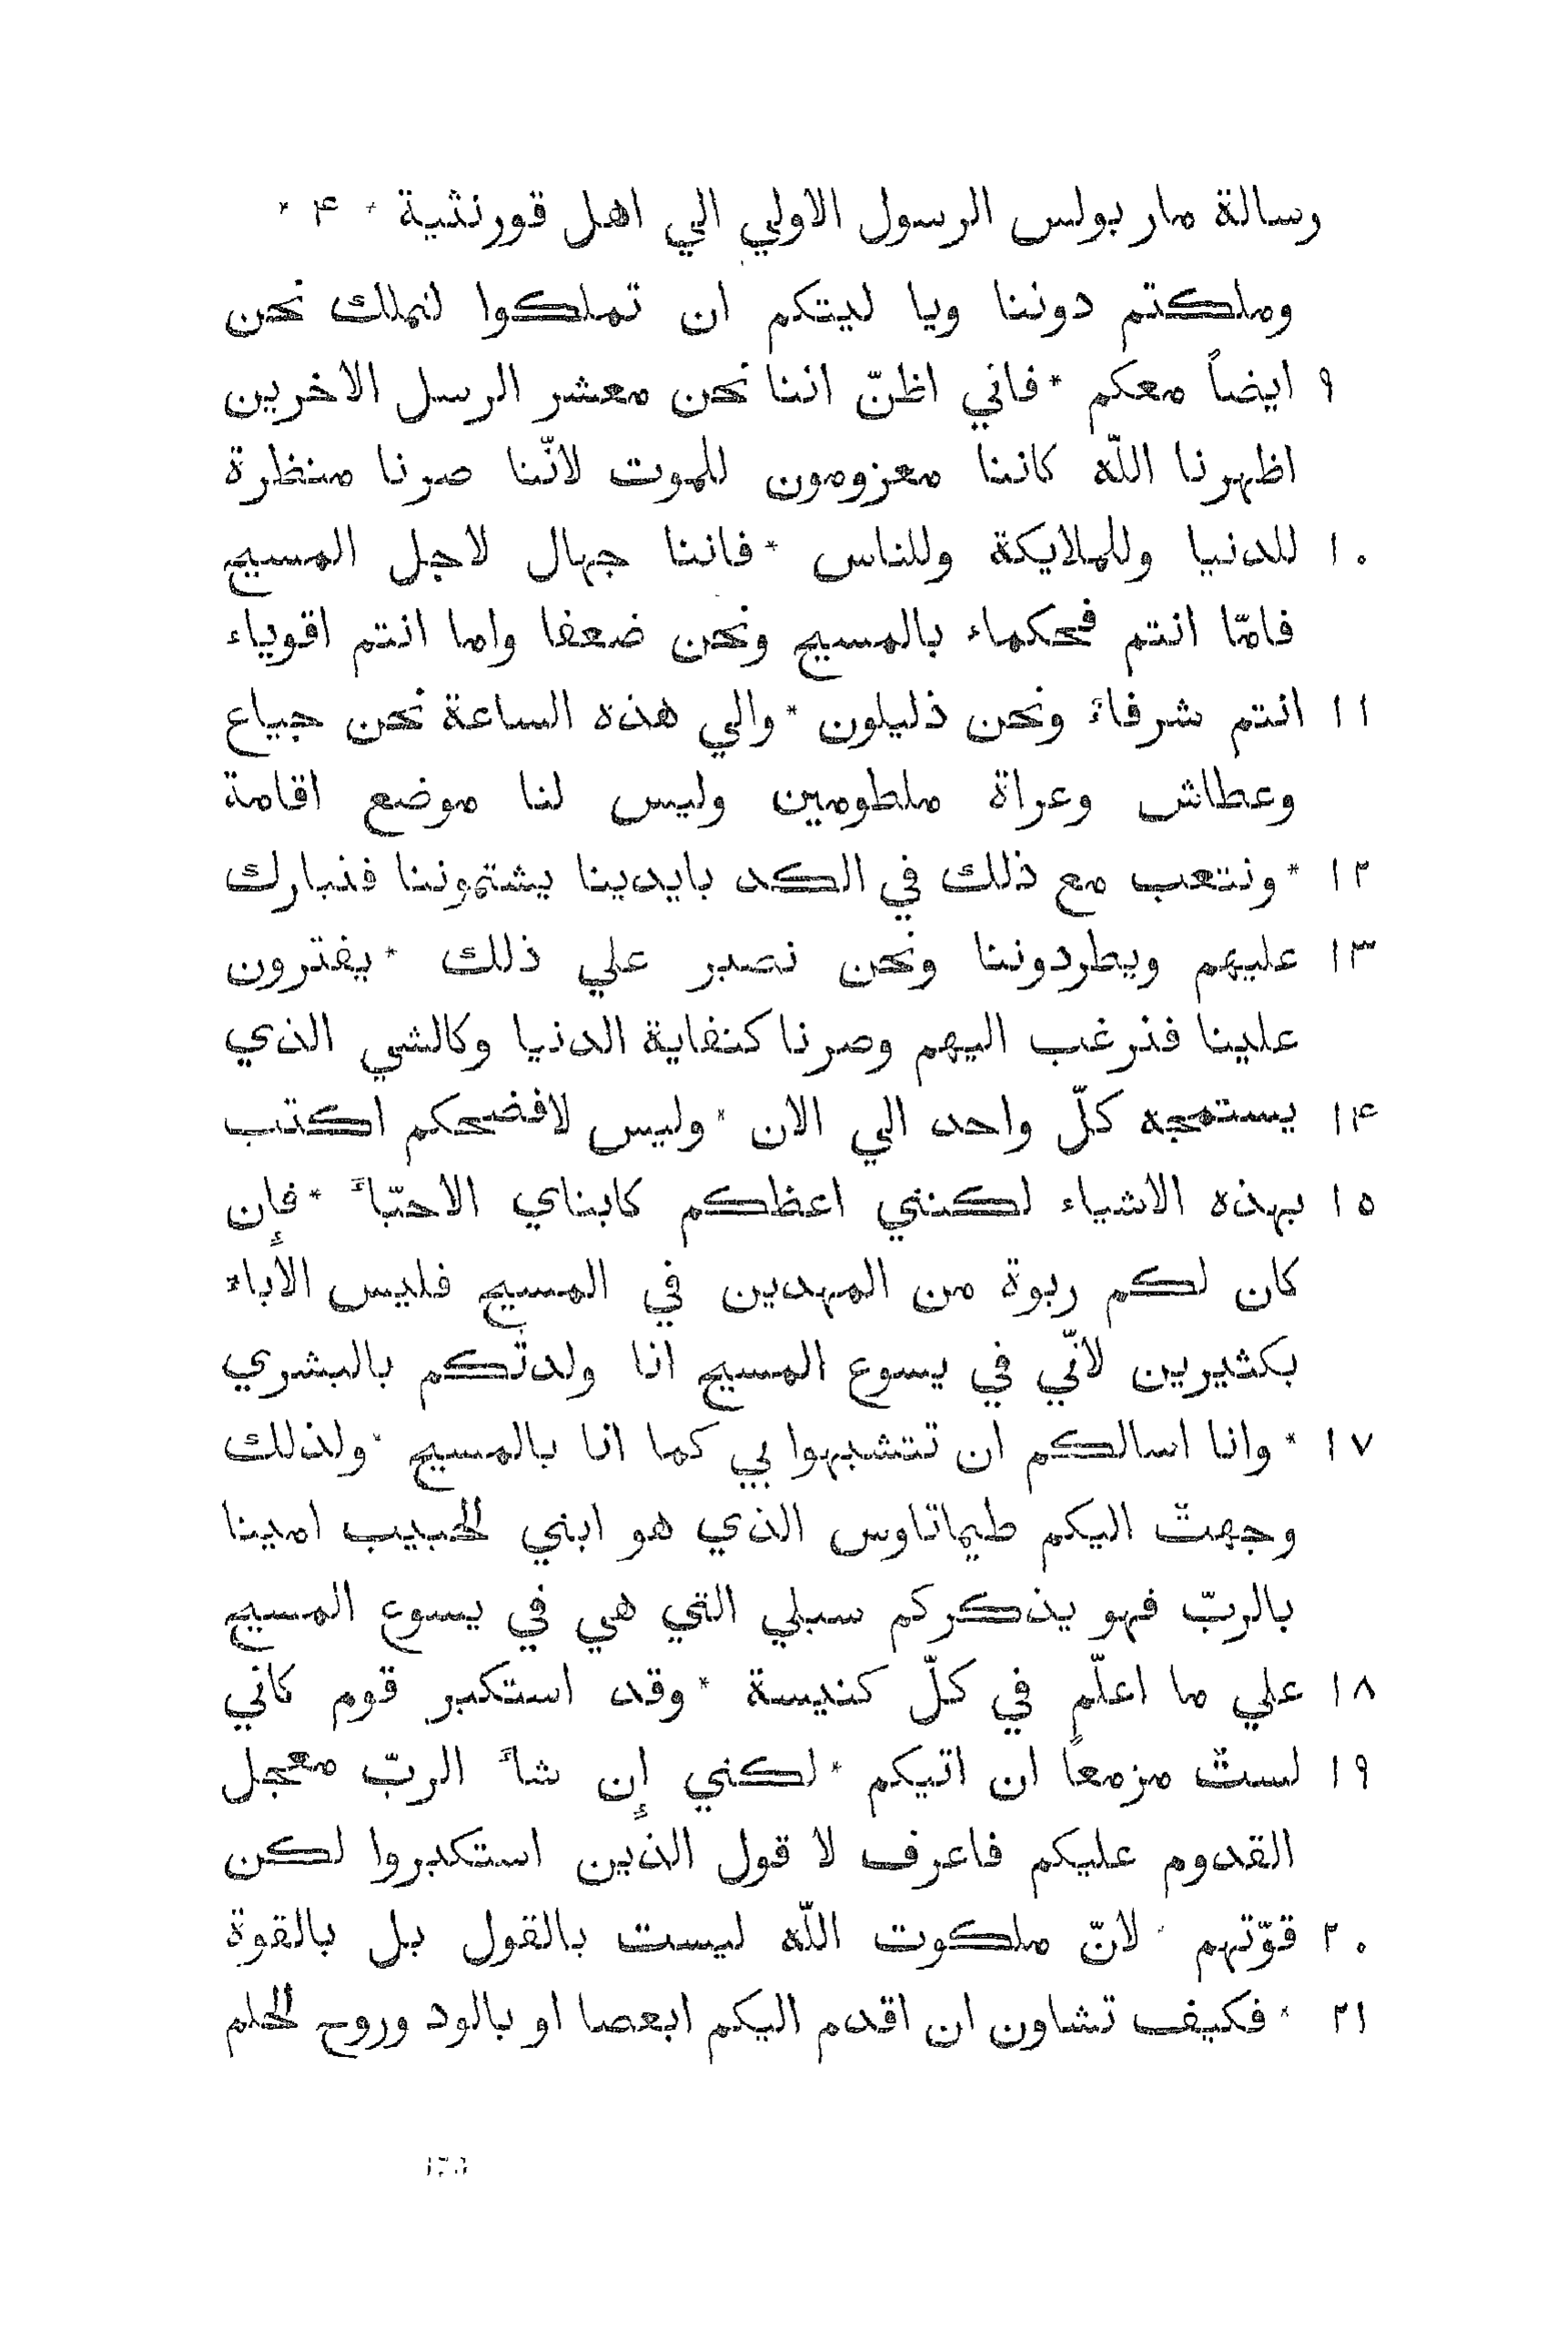 رسالة مار بولس الرسول الاولي الي اهل قورنثية * ۴ *
وملكتم دوننا ويا ليتكم ان تملكوا لنملك نحن
۹ ايضاً معكم * فاني اظنّ اننا نحن معشر الرسل الاخرين
اظهرنا اللّه كاننا معزومون للموت لانّنا صرنا منظرة
۱۰ للدنيا وللملايكة وللناس * فاننا جهال لاجل المسيح
فامّا انتم فحكماء بالمسيح ونحن ضعفا واما انتم اقوياء
۱۱ انتم شرفاءَ ونحن ذليلون * والي هذه الساعة نحن جياع
وعطاش وعراة ملطومين وليس لنا موضع اقامة
۱۲ * ونتعب مع ذلك في الكد بايدينا يشتموننا فنبارك
۱۳ عليهم ويطردوننا ونحن نصبر علي ذلك * يفترون
علينا فنرغب اليهم وصرنا كنفاية الدنيا وكالشي الذي
۱۴ يستمجه كلّ واحد الي الان * وليس لافضحكم اكتب
۱۵ بهذه الاشياء لكنني اعظكم كابناي الاحبّاءَ * فإن
كان لكم ربوة من المهدين في المسيح فليس الأباء
بكثيرين لانّي في يسوع المسيح انا ولدتكم بالبشري
۱۷ * وانا اسالكم ان تتشبهوا بي كما انا بالمسيح * ولذلك
وجهتُ اليكم طيماتاوس الذي هو ابني الحبيب امينا
بالربّ فهو يذكركم سبلي التي هي في يسوع المسيح
۱۸ علي ما اعلّم في كلّ كنيسة * وقد استكبر قوم كاني
۱۹ لستُ مزمعاً ان اتيكم * لكني إن شاءَ الربّ معجل
القدوم عليكم فاعرف لا قول الذين استكبروا لكن
۲۰ قوّتهم * لانّ ملكوت اللّه ليست بالقول بل بالقوة
۲۱ * فكيف تشاون ان اقدم اليكم ابعصا او بالود وروح الحلم